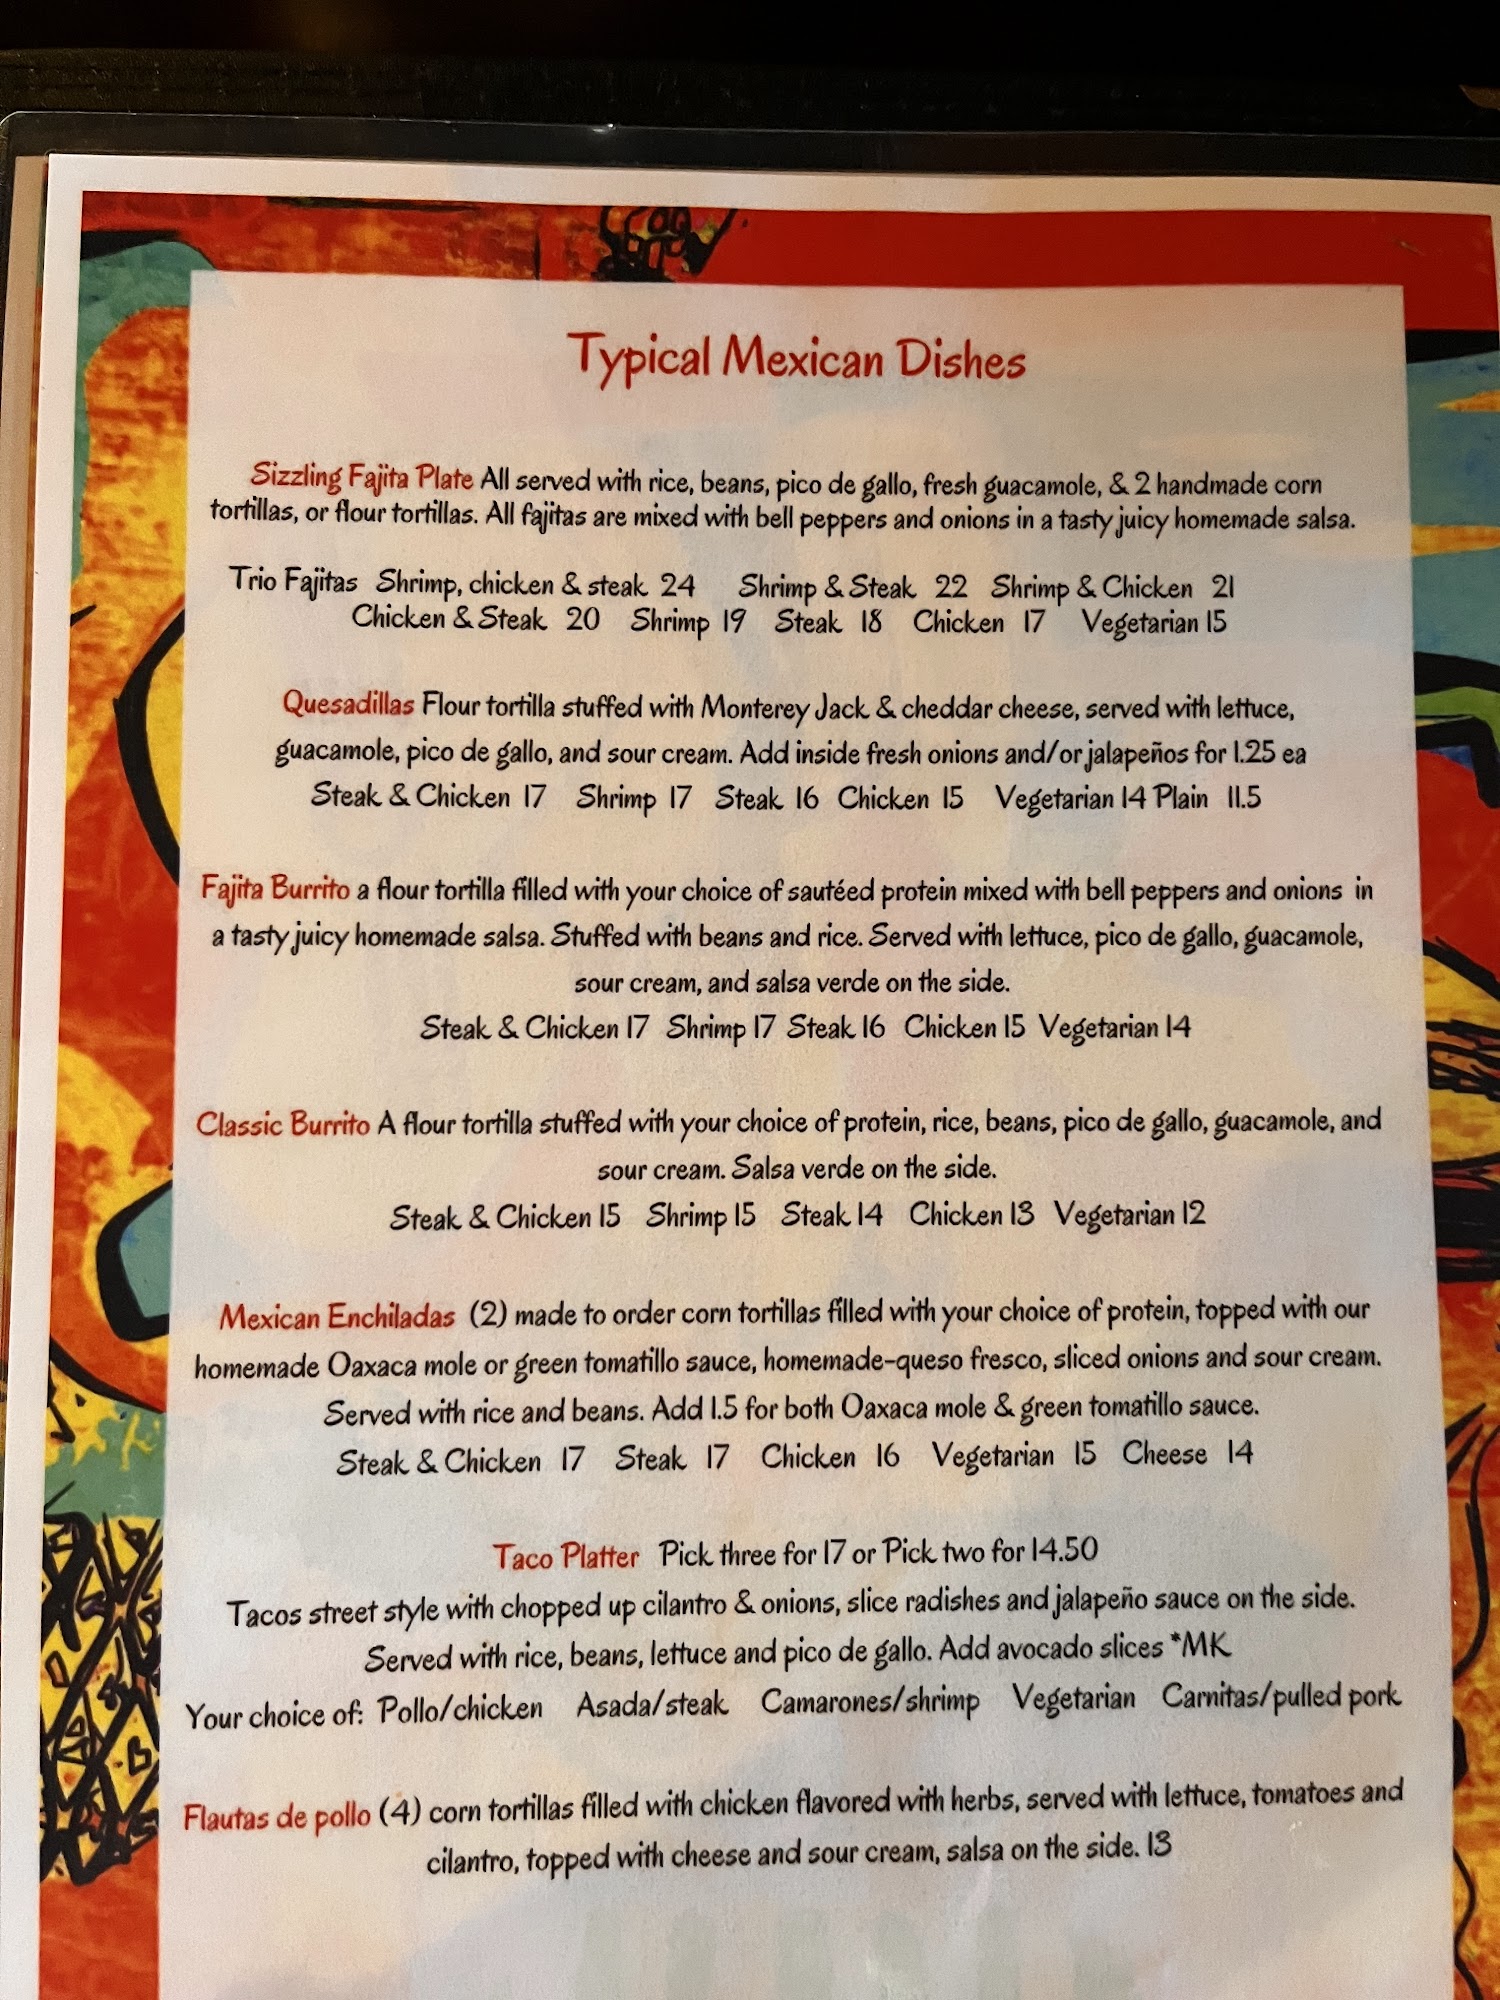 Typical Mexican Dishes
Sizzling Fajita Plate All served with rice, beans, pico de gallo, fresh guacamole, & 2 handmade corn
tortillas, or flour tortillas. All fajitas are mixed with bell peppers and onions in a tasty juicy homemade salsa.
Trio Fajitas Shrimp, chicken & steak 24 Shrimp & Steak 22 Shrimp & Chicken 21
Chicken & Steak 20 Shrimp 19 Steak 18 Chicken 17 Vegetarian 15
Quesadillas Flour tortilla stuffed with Monterey Jack & cheddar cheese, served with lettuce,
guacamole, pico de gallo, and sour cream. Add inside fresh onions and/or jalapeños for 1.25 ea
Steak & Chicken 17 Shrimp 17 Steak 16 Chicken 15 Vegetarian 14 Plain 11.5
Fajita Burrito a flour tortilla filled with your choice of sautéed protein mixed with bell peppers and onions in
a tasty juicy homemade salsa. Stuffed with beans and rice. Served with lettuce, pico de gallo, guacamole,
sour cream, and salsa verde on the side.
Steak & Chicken 17 Shrimp 17 Steak 16 Chicken 15 Vegetarian 14
Classic Burrito A flour tortilla stuffed with your choice of protein, rice, beans, pico de gallo, guacamole, and
sour cream. Salsa verde on the side.
Steak & Chicken 15 Shrimp 15 Steak 14 Chicken 13 Vegetarian 12
Mexican Enchiladas (2) made to order corn tortillas filled with your choice of protein, topped with our
homemade Oaxaca mole or green tomatillo sauce, homemade-queso fresco, sliced onions and sour cream.
Served with rice and beans. Add 1.5 for both Oaxaca mole & green tomatillo sauce.
Steak & Chicken 17 Steak 17 Chicken 16 Vegetarian 15 Cheese 14
Taco Platter Pick three for 17 or Pick two for 14.50
Tacos street style with chopped up cilantro & onions, slice radishes and jalapeño sauce on the side.
Served with rice, beans, lettuce and pico de gallo. Add avocado slices *MK
Your choice of: Pollo/chicken Asada/steak Camarones/shrimp Vegetarian Carnitas/pulled pork
Flautas de pollo (4) corn tortillas filled with chicken flavored with herbs, served with lettuce, tomatoes and
cilantro, topped with cheese and sour cream, salsa on the side. 13